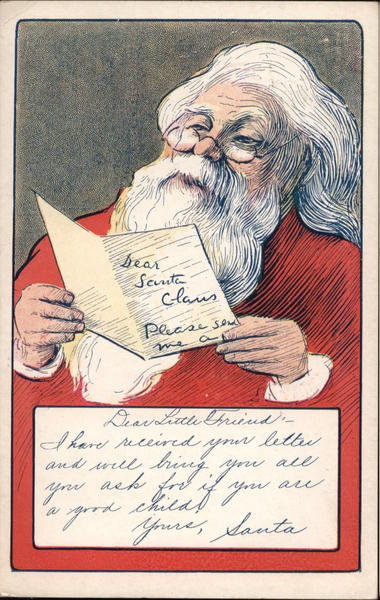 Dear
Santa
Claus
Please send
me a
Dear Little Friend:-
I have received your letter
and will bring you all
you ask for if you are
a good child.
Yours, Santa